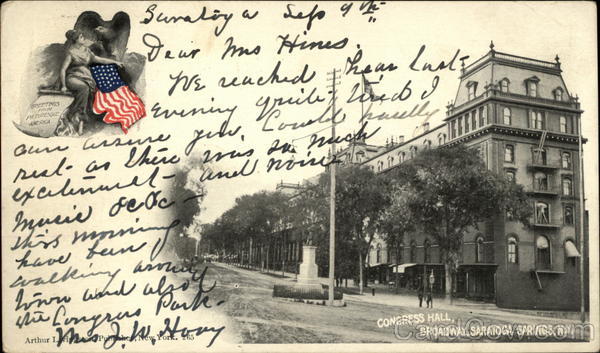 Saratoga Sep 9th
Dear Mrs Hines.
We reached hear last-
evening quite tired I
can assure you. Could hardly
rest- as there was so much
excitement- and noise
Music &c &c -
this morning
have been
walking around
town and also
the Congress Park-
Mrs J. W. Hoay
GREETINGS
FROM
PICTURESQUE
AMERICA
CONGRESS HALL,
BROADWAY, SARATOGA SPRINGS, N.Y.
Arthur Publisher, New York. 165